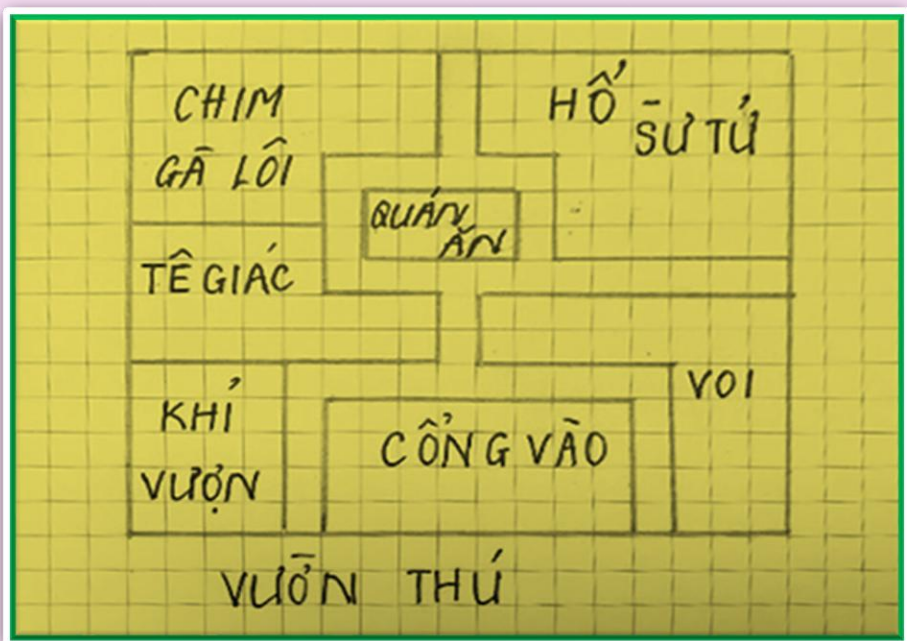 CHIM
GÀ LÔI
HỔ
SƯ TỬ
QUÁN
ĂN
TÊ GIÁC
VOI
KHỈ
VƯỢN
CỔNG VÀO
VƯỜN THÚ